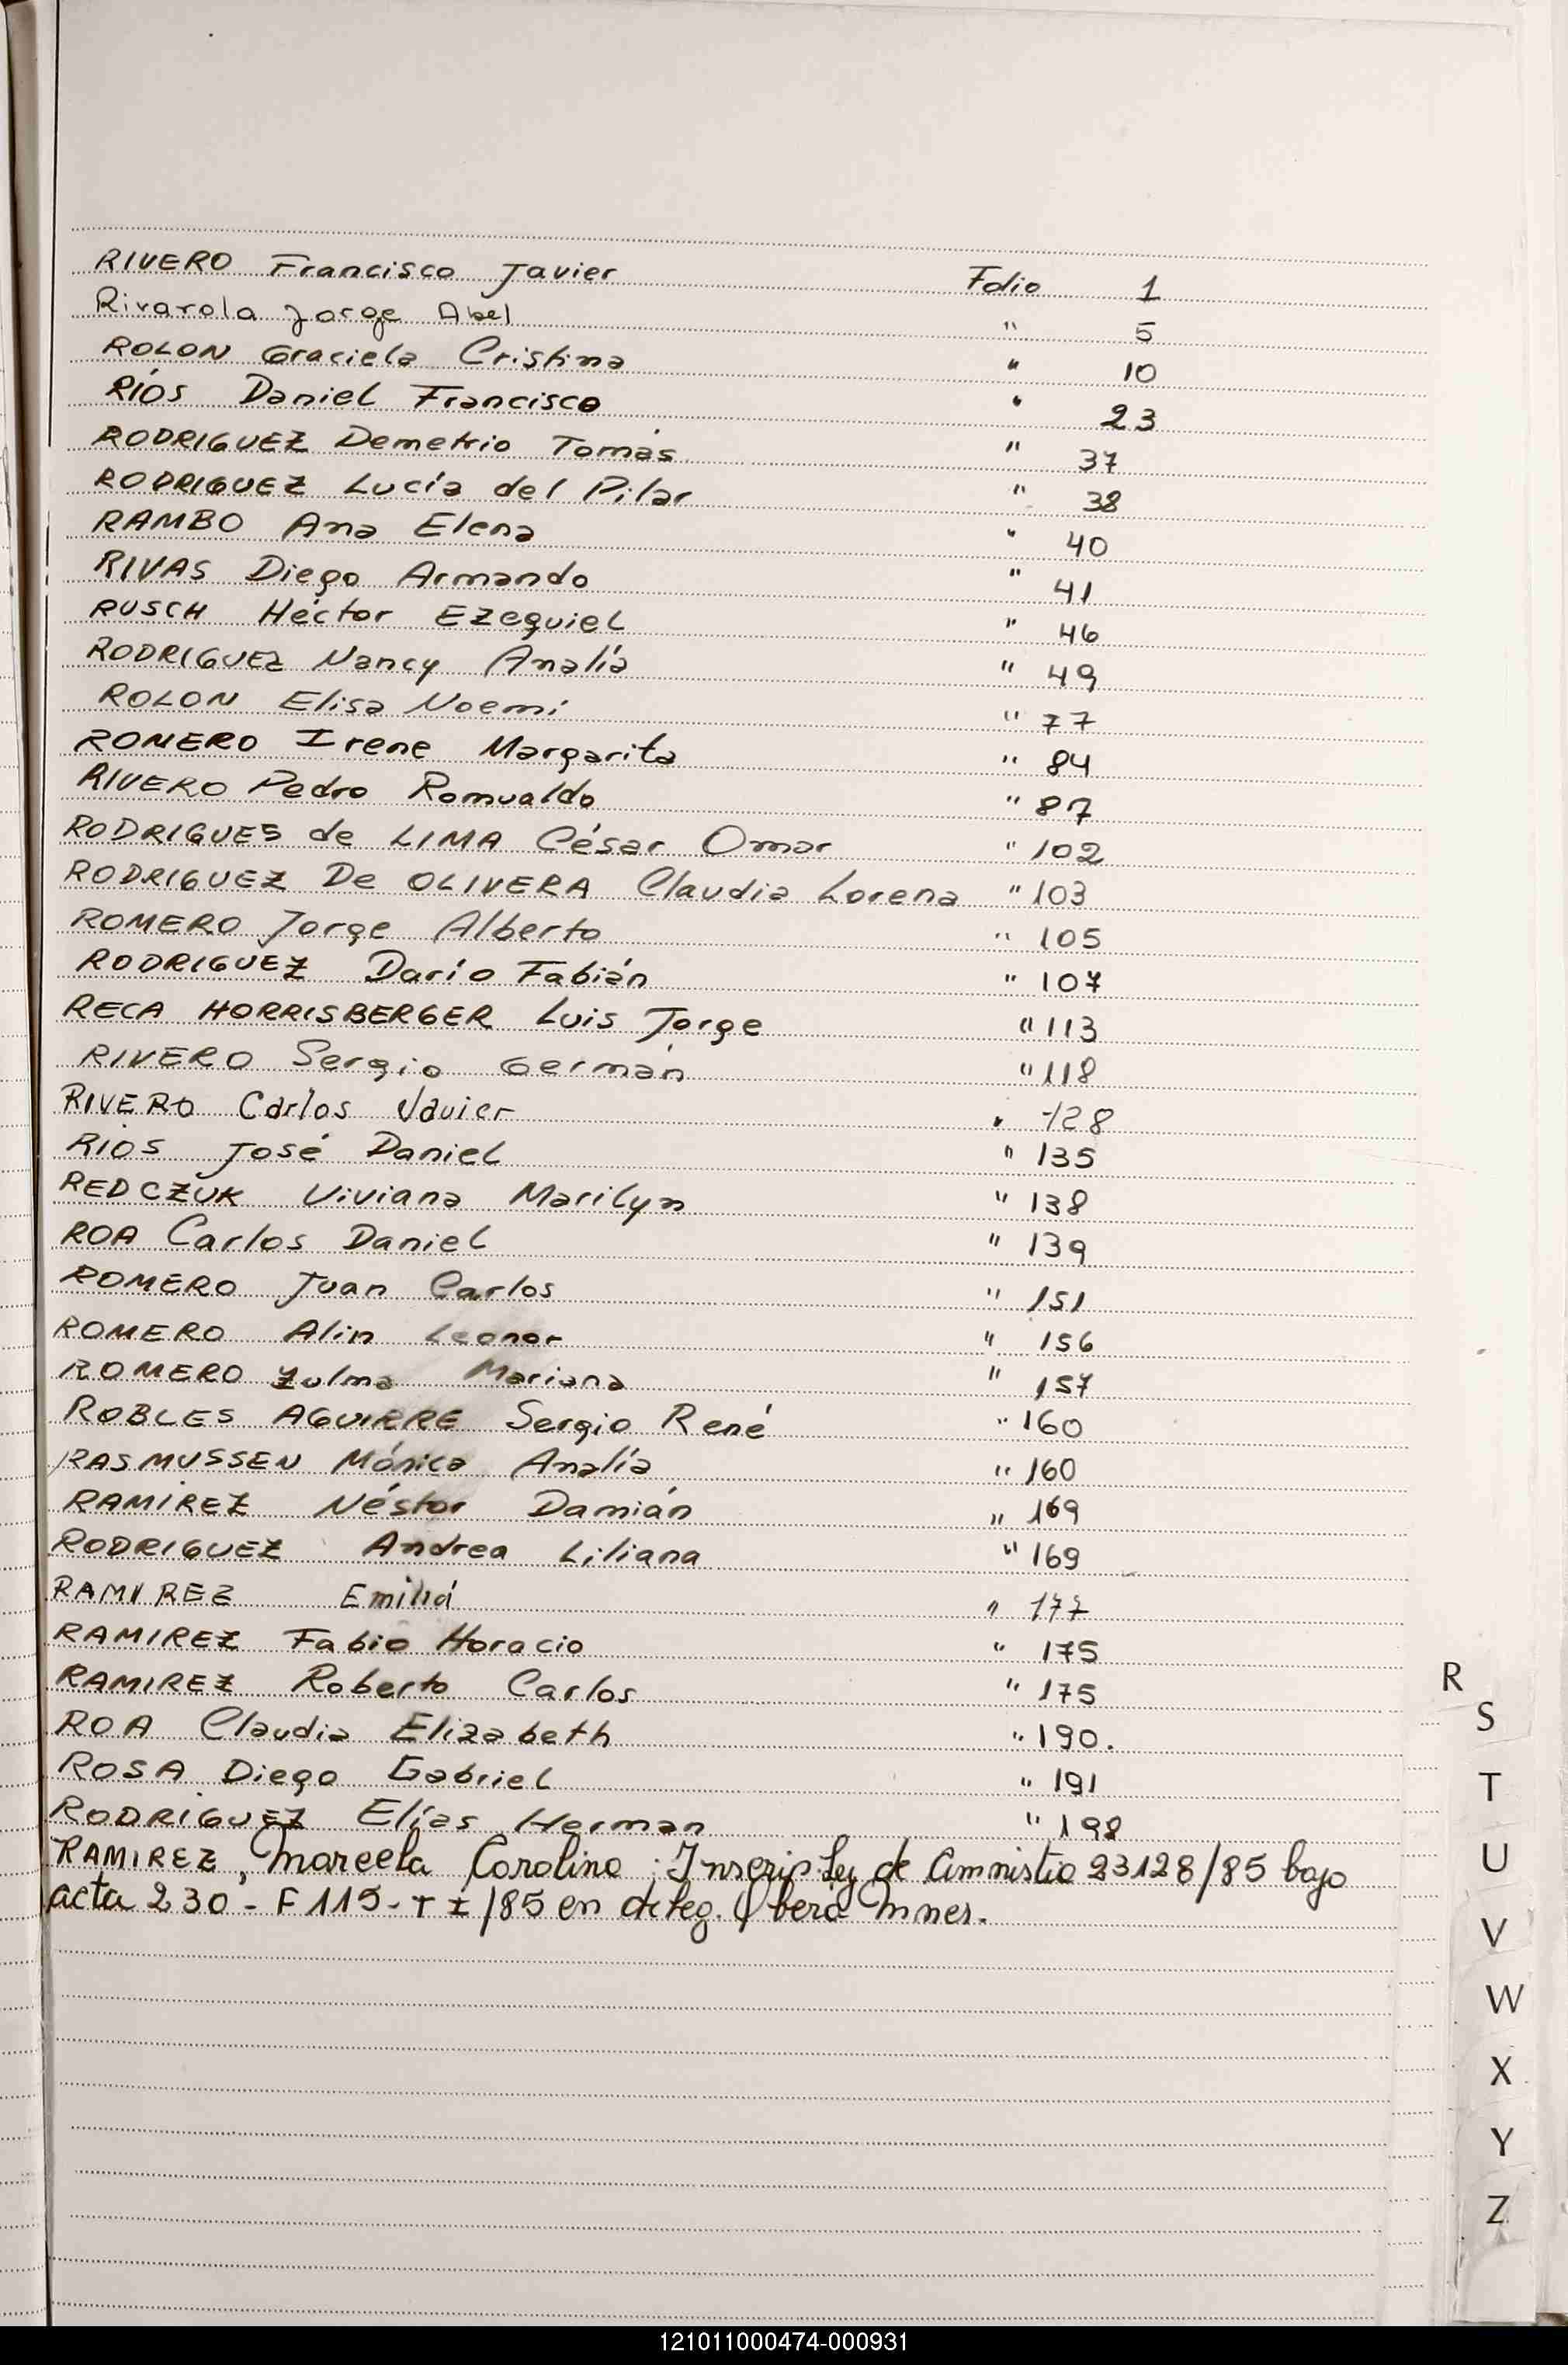 RIVERO Francisco Javier Folio 1
Rivarola Jorge Abel " 5
ROLON Graciela Cristina " 10
RÍOS Daniel Francisco " 23
RODRIGUEZ Demetrio Tomás " 37
RODRIGUEZ Lucía del Pilar " 38
RAMBO Ana Elena " 40
RIVAS Diego Armando " 41
RUSCH Héctor Ezequiel " 46
RODRIGUEZ Nancy Analía " 49
ROLON Elisa Noemi " 77
ROMERO Irene Margarita " 84
RIVERO Pedro Romualdo " 87
RODRIGUES de LIMA César Omar " 102
RODRIGUEZ De OLIVERA Claudia Lorena " 103
ROMERO Jorge Alberto " 105
RODRIGUEZ Darío Fabián " 107
RECA HORRISBERGER Luis Jorge " 113
RIVERO Sergio Germán " 118
RIVERO Carlos Javier " 128
RIOS José Daniel " 135
REDCZUK Viviana Marilyn " 138
ROA Carlos Daniel " 139
ROMERO Juan Carlos " 151
ROMERO Alin Leonor " 156
ROMERO Zulma Mariana " 157
ROBLES AGUIRRE Sergio René " 160
RASMUSSEN Mónica Analía " 160
RAMIREZ Néstor Damián " 169
RODRIGUEZ Andrea Liliana " 169
RAMIREZ Emilia " 177
RAMIREZ Fabio Horacio " 175
RAMIREZ Roberto Carlos " 175
ROA Claudia Elizabeth " 190.
ROSA Diego Gabriel " 191
RODRIGUEZ Elías Herman " 198
RAMIREZ, Marcela Carolina : Inscrip. Ley de Amnistia 23128/85 bajo
acta 230 - F 115 - T I /85 en deleg. Oberá Mnes.
R
S
T
U
V
W
X
Y
Z
121011000474-000931